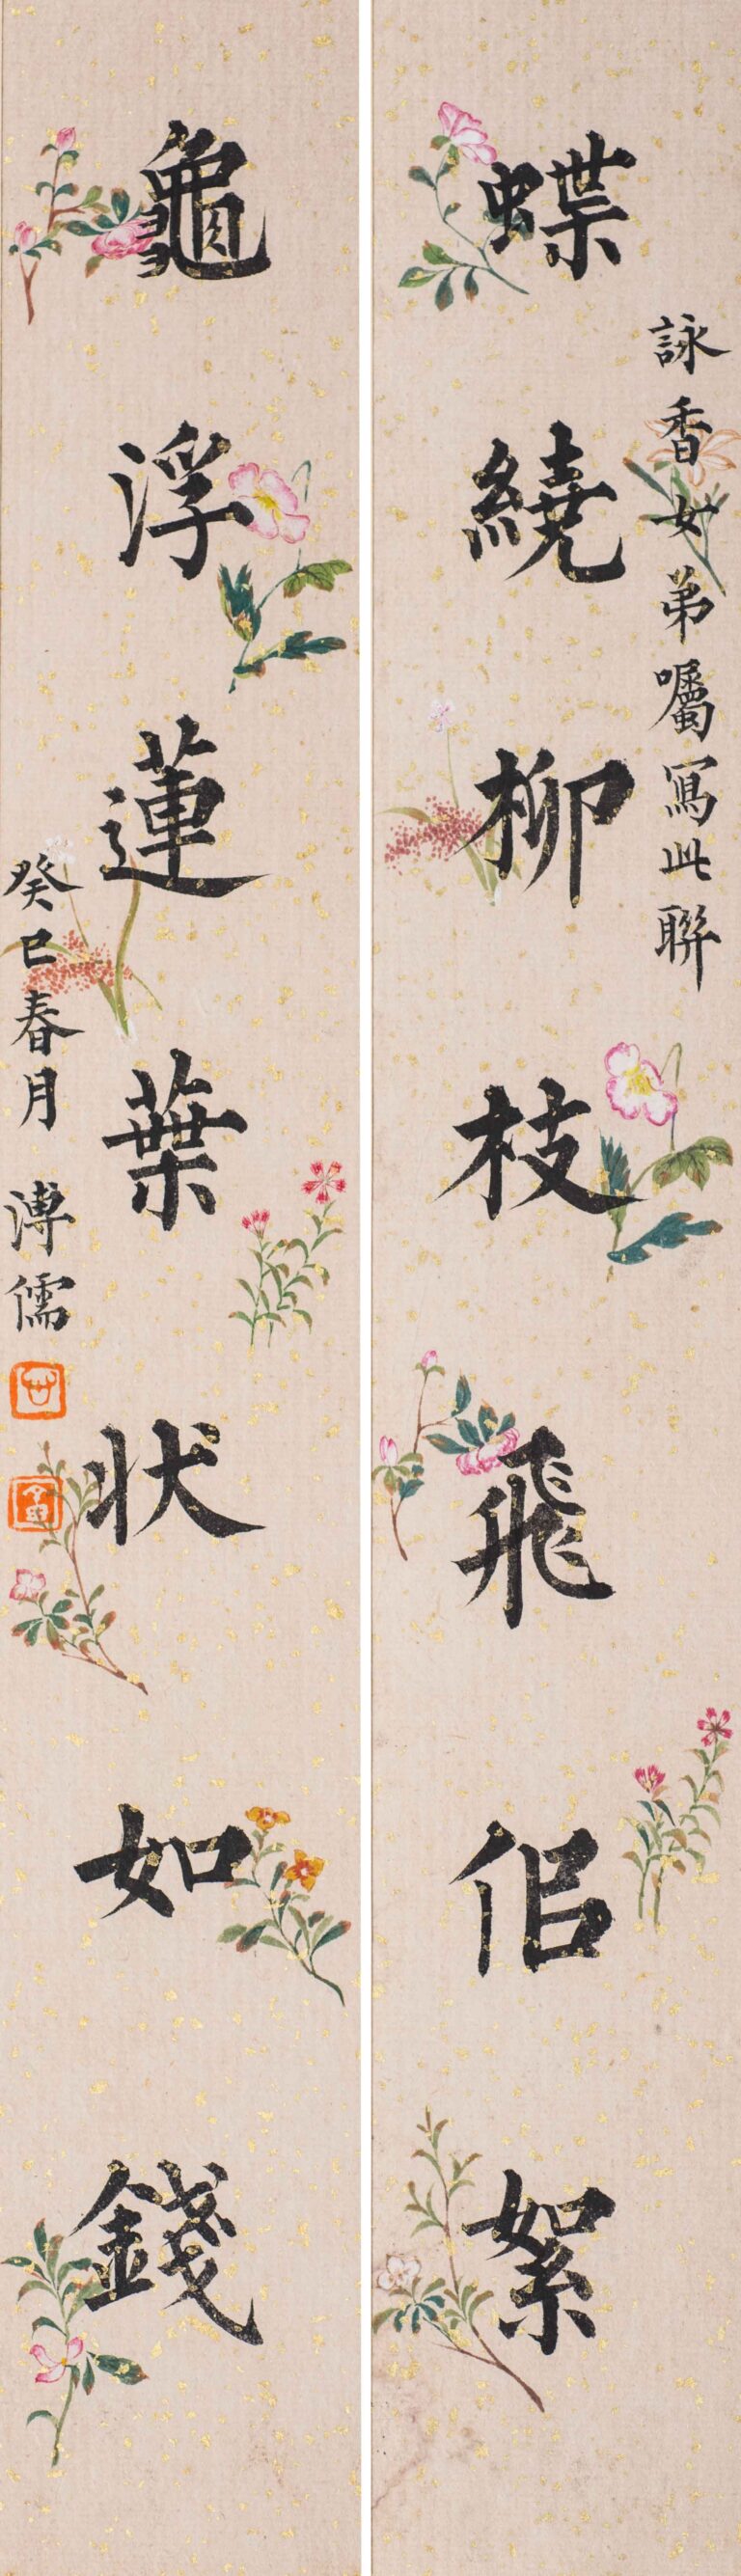 詠香女弟囑寫此聯
蝶繞柳枝飛侣絮
龜浮蓮葉状如錢
癸巳春月 溥儒